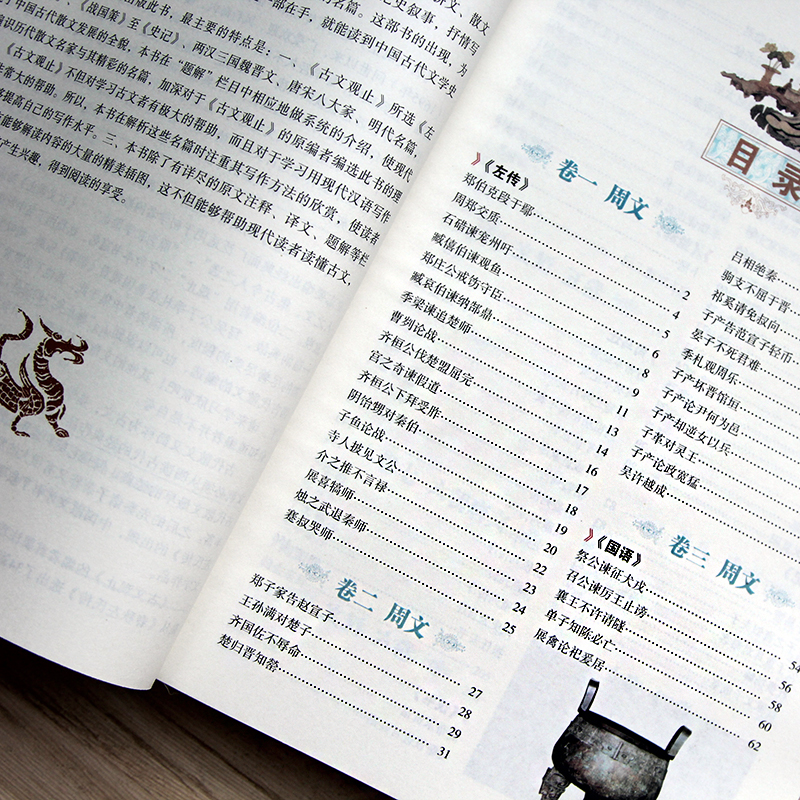 文、散文
史叙事，抒情写
名篇。这部书的出现，为
部在手，就能读到中国古代文学史
出版此书，最主要的特点是：一、《古文观止》所选《左
、《战国策》至《史记》、两汉三国魏晋文、唐宋八大家、明代名篇，
了中国古代散文发展的全貌，本书在“题解”栏目中相应地做系统的介绍，使现代
遍识历代散文名家与其精彩的名篇，加深对于《古文观止》的原编者编选此书的理
《古文观止》不但对学习古文者有极大的帮助，而且对于学习用现代汉语写作
非常大的帮助。所以，本书在解析这些名篇时注重其写作方法的欣赏，使读者
够提高自己的写作水平。三、本书除了有详尽的原文注释、译文、题解等栏
能够解读内容的大量的精美插图，这不但能够帮助现代读者读懂古文，
产生兴趣，得到阅读的享受。
目录
卷一 周文
《左传》
郑伯克段于鄢 2
周郑交质 4
石碏谏宠州吁 5
臧僖伯谏观鱼 6
郑庄公戒饬守臣 8
臧哀伯谏纳郜鼎 9
季梁谏追楚师 11
曹刿论战 13
齐桓公伐楚盟屈完 14
宫之奇谏假道 16
齐桓公下拜受胙 17
阴饴甥对秦伯 18
子鱼论战 19
寺人披见文公 20
介之推不言禄 22
展喜犒师 23
烛之武退秦师 24
蹇叔哭师 25
卷二 周文
郑子家告赵宣子 27
王孙满对楚子 28
齐国佐不辱命 29
楚归晋知罃 31
吕相绝秦
驹支不屈于晋
祁奚请免叔向
子产告范宣子轻币
晏子不死君难
季札观周乐
子产坏晋馆垣
子产论尹何为邑
子产却逆女以兵
子革对灵王
子产论政宽猛
吴许越成
卷三 周文
《国语》
祭公谏征犬戎 54
召公谏厉王止谤 56
襄王不许请隧 58
单子知陈必亡 60
展禽论祀爰居 62